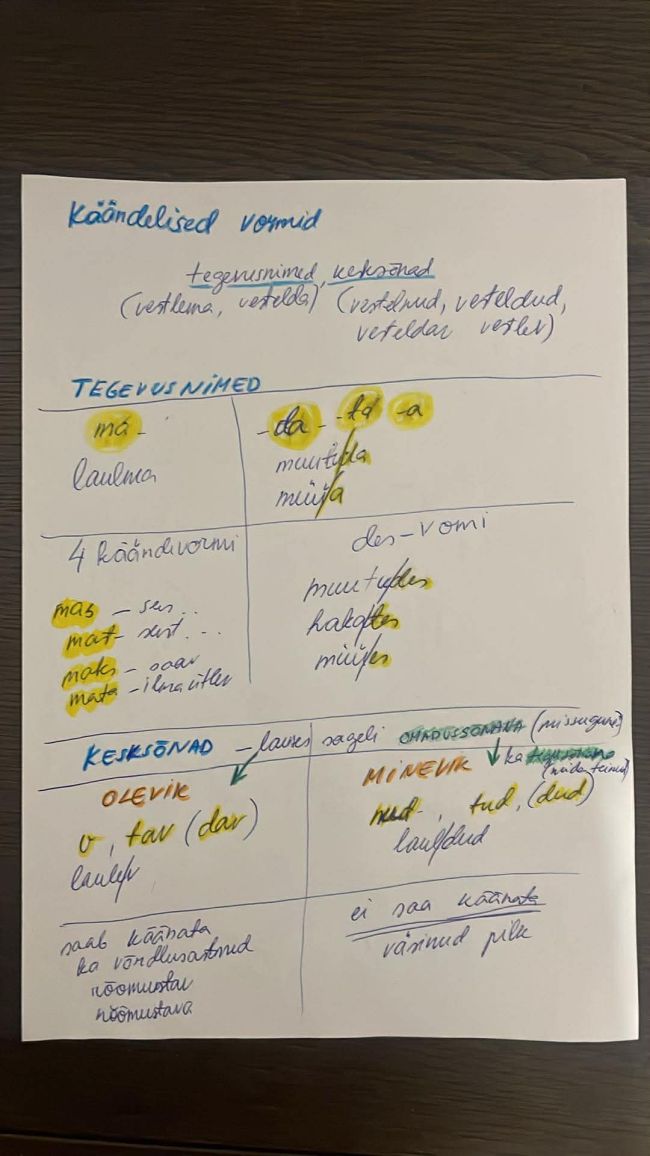 Käändelised vormid
tegevusnimed, keksõnad
(vestlema, vestelda) (vestelnud, vesteldud,
vesteldav vestlev)
TEGEVUSNIMED
ma-
-da- -ta -a
laulma
muutu/da
müü/a
4 käändevormi
des-vormi
mas - ses..
mat- sest ...
maks - saav
mata - ilmaütlev
muutu/des
haka/tes
müü/es
KESKSÕNAD - lauses sageli OMADUSSÕNANA (missugune?)
ka (mida teinud)
OLEVIK
MINEVIK
v, tav (dav)
nud-, tud, (dud)
laul/dud
laulev
saab käänata
ka võrdlusastmed
rõõmustav
rõõmustava
ei saa käänata
väsinud pilk